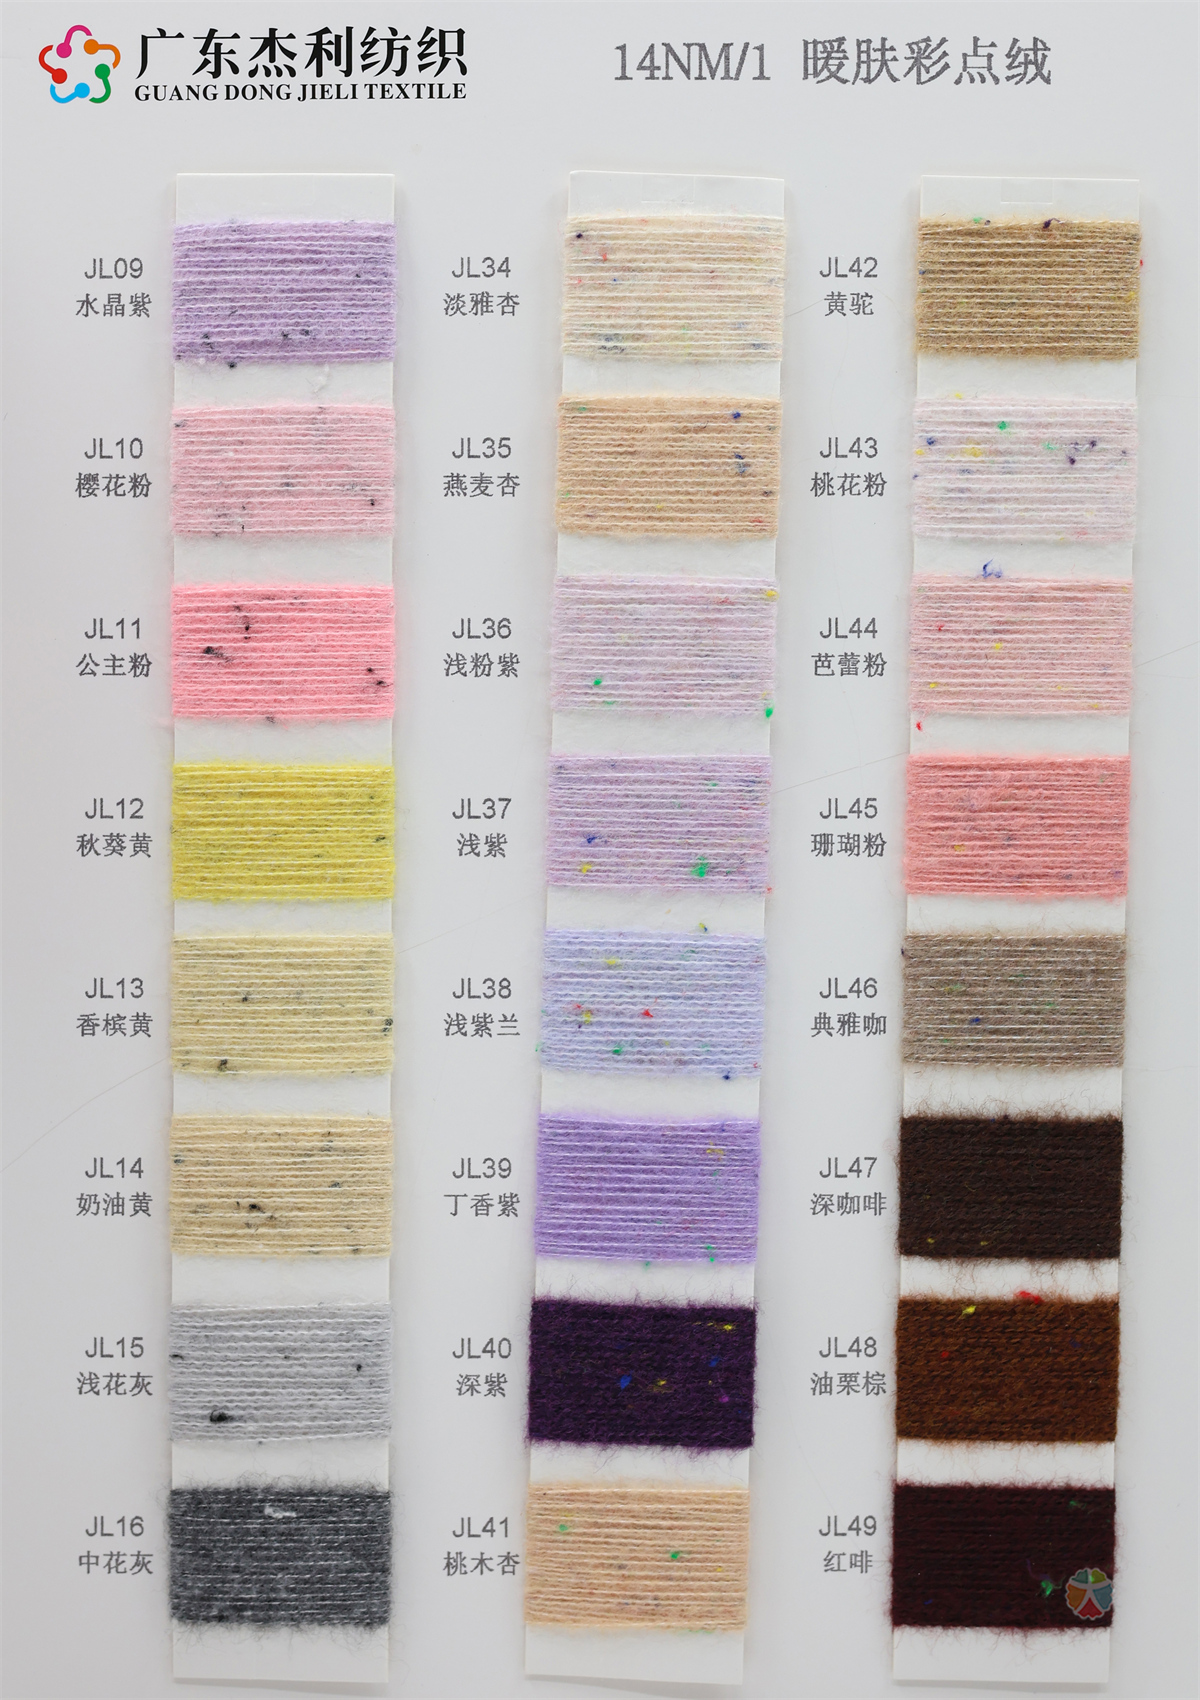 广东杰利纺织
GUANG DONG JIELI TEXTILE
14NM/1 暖肤彩点绒
JL09
水晶紫
JL10
樱花粉
JL11
公主粉
JL12
秋葵黄
JL13
香槟黄
JL14
奶油黄
JL15
浅花灰
JL16
中花灰
JL34
淡雅杏
JL35
燕麦杏
JL36
浅粉紫
JL37
浅紫
JL38
浅紫兰
JL39
丁香紫
JL40
深紫
JL41
桃木杏
JL42
黄驼
JL43
桃花粉
JL44
芭蕾粉
JL45
珊瑚粉
JL46
典雅咖
JL47
深咖啡
JL48
油栗棕
JL49
红啡